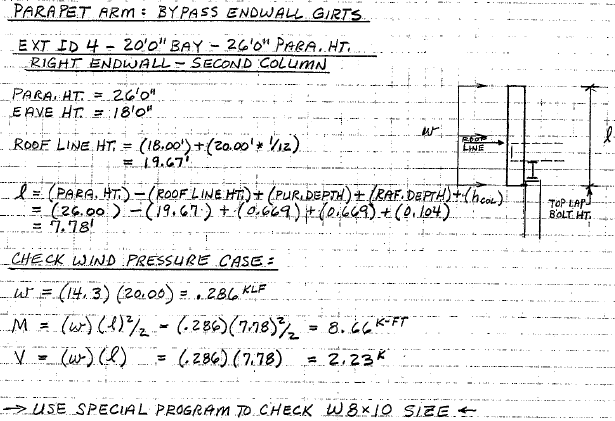 PARAPET ARM: BYPASS ENDWALL GIRTS
EXT ID 4 - 20'0" BAY - 26'0" PARA. HT.
RIGHT ENDWALL - SECOND COLUMN
PARA. HT. = 26'0"
EAVE HT. = 18'0"
ROOF LINE HT. = (18.00') + (20.00' * 1/12)
= 19.67'
l = (PARA. HT.) - (ROOF LINE HT.) + (PUR. DEPTH) + (RAF. DEPTH) + (hCOL)
= (26.00 ) - (19.67') + (0.669) + (0.669) + (0.104)
= 7.78'
w
ROOF
LINE
l
TOP LAP
BOLT. HT.
CHECK WIND PRESSURE CASE:
w = (14.3)(20.00) = .286 KLF
M = (w)(l)²/2 - (.286)(7.78)²/2 = 8.66 K-FT
V = (w)(l) = (.286)(7.78) = 2.23 K
→ USE SPECIAL PROGRAM TO CHECK W8×10 SIZE ←